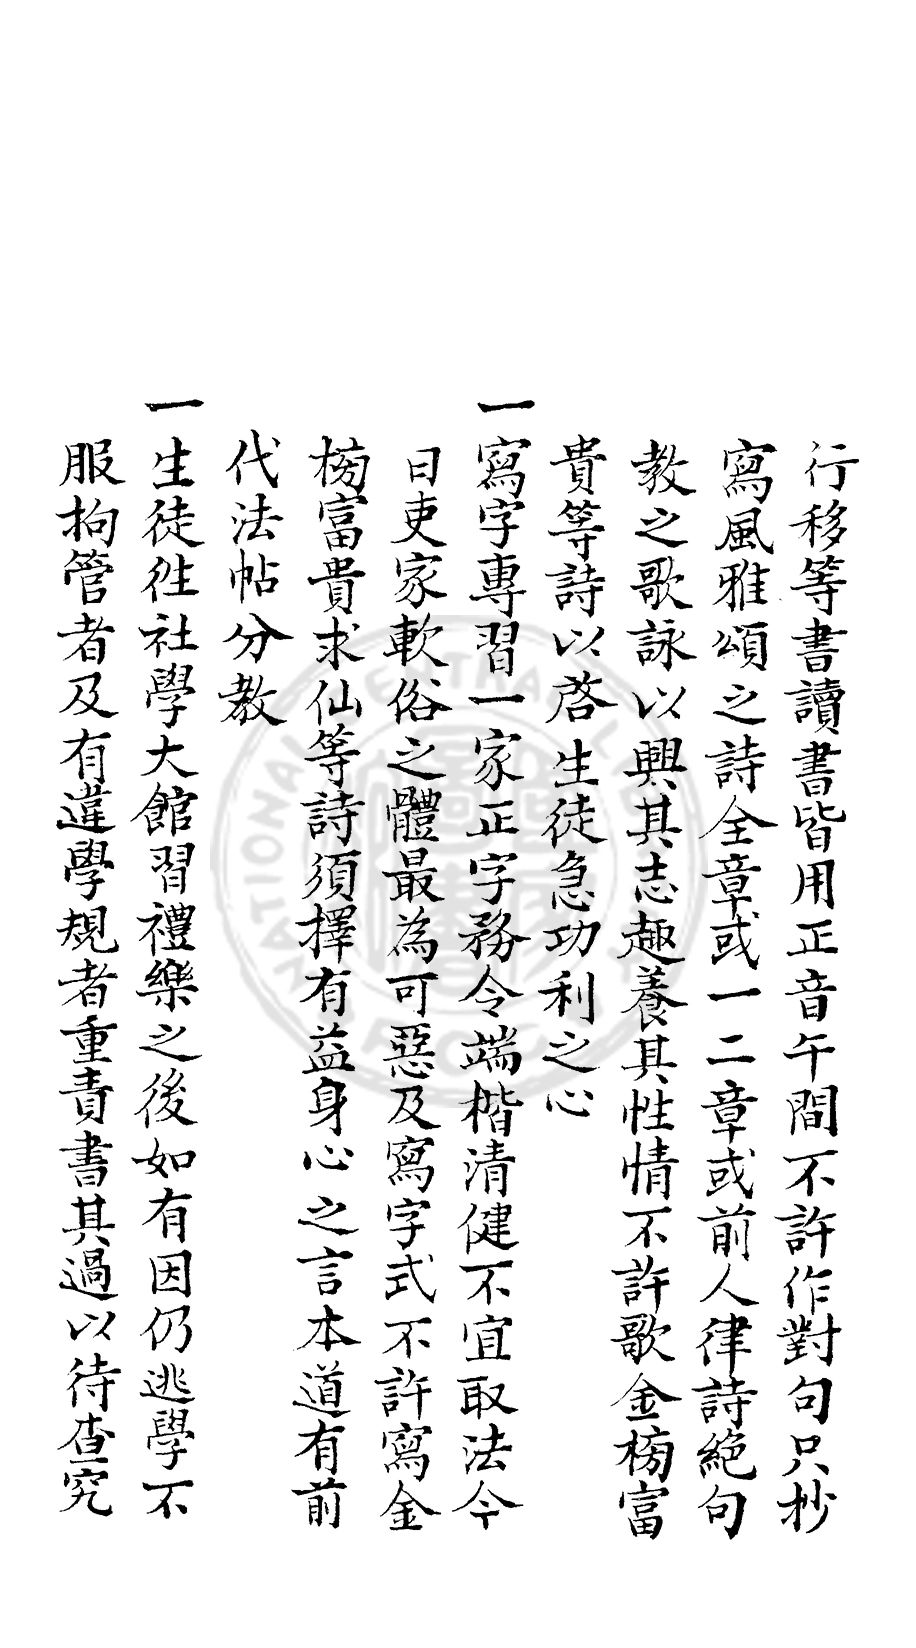 行移等書讀書皆用正音午間不許作對句只抄
寫風雅頌之詩全章或一二章或前人律詩絕句
教之歌詠以興其志趣養其性情不許歌金榜富
貴等詩以啓生徒急功利之心
一寫字專習一家正字務令端楷清健不宜取法今
日吏家軟俗之體最為可惡及寫字式不許寫金
榜富貴求仙等詩須擇有益身心之言本道有前
代法帖分教
一生徒徃社學大館習禮樂之後如有因仍逃學不
服拘管者及有違學規者重責書其過以待查究